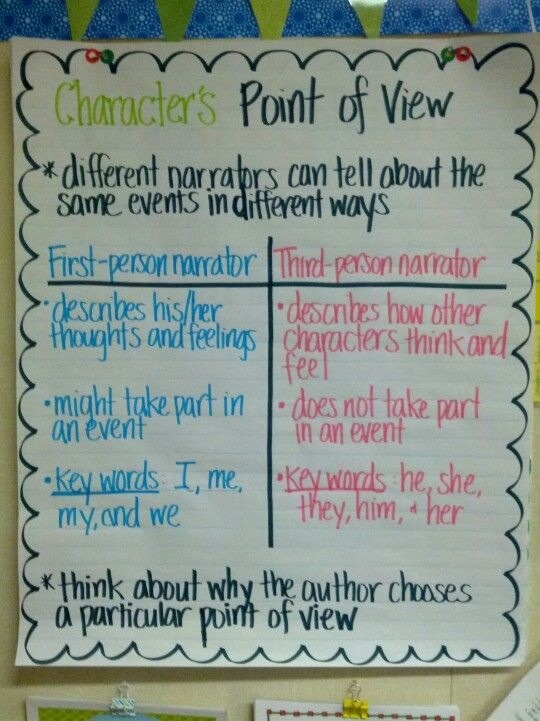 Character's Point of View
* different narrators can tell about the
same events in different ways
First-person narrator
• describes his/her
thoughts and feelings
• might take part in
an event
• key words: I, me,
my, and we
Third-person narrator
• describes how other
characters think and
feel
• does not take part
in an event
• key words: he, she,
they, him, & her
* think about why the author chooses
a particular point of view